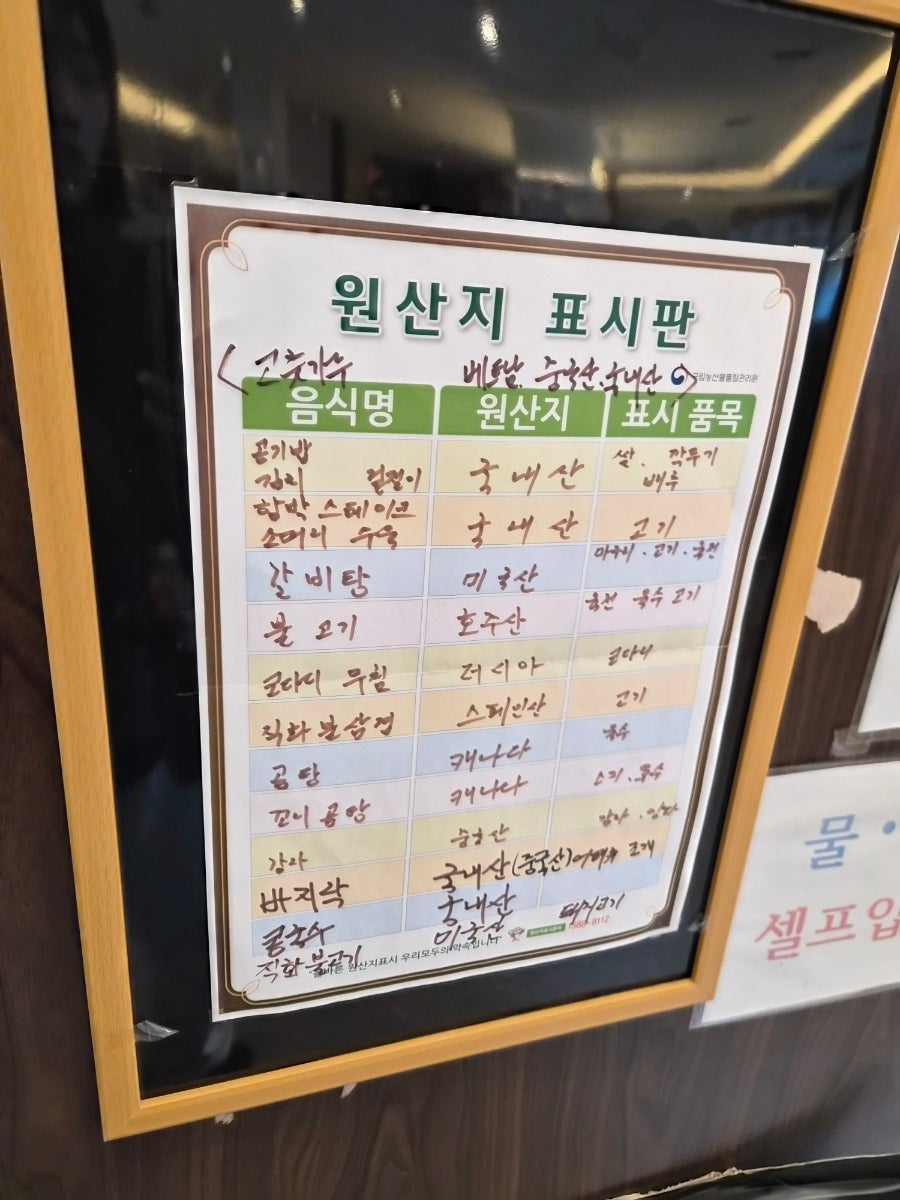 원산지 표시판
<고춧가루 베트남, 중국산, 국내산>
국립농산물품질관리원
음식명 원산지 표시 품목
공기밥 쌀, 깍두기
김치 겉절이 국내산 배추
함박 스테이크
소머리 수육 국내산 고기
갈비탕 미국산 마구리, 고기, 육전
불고기 호주산 육전 육수 고기
코다리 무침 러시아 코다리
직화 불삼겹 스페인산 고기
곰탕 캐나다 육수
꼬리곰탕 캐나다 육수
감자
바지락 국내산(중국산) 조개
콩국수 국내산
직화 불고기 미국산 돼지고기
올바른 원산지표시 우리모두의 약속입니다
1588-8112
물 ·
셀프입